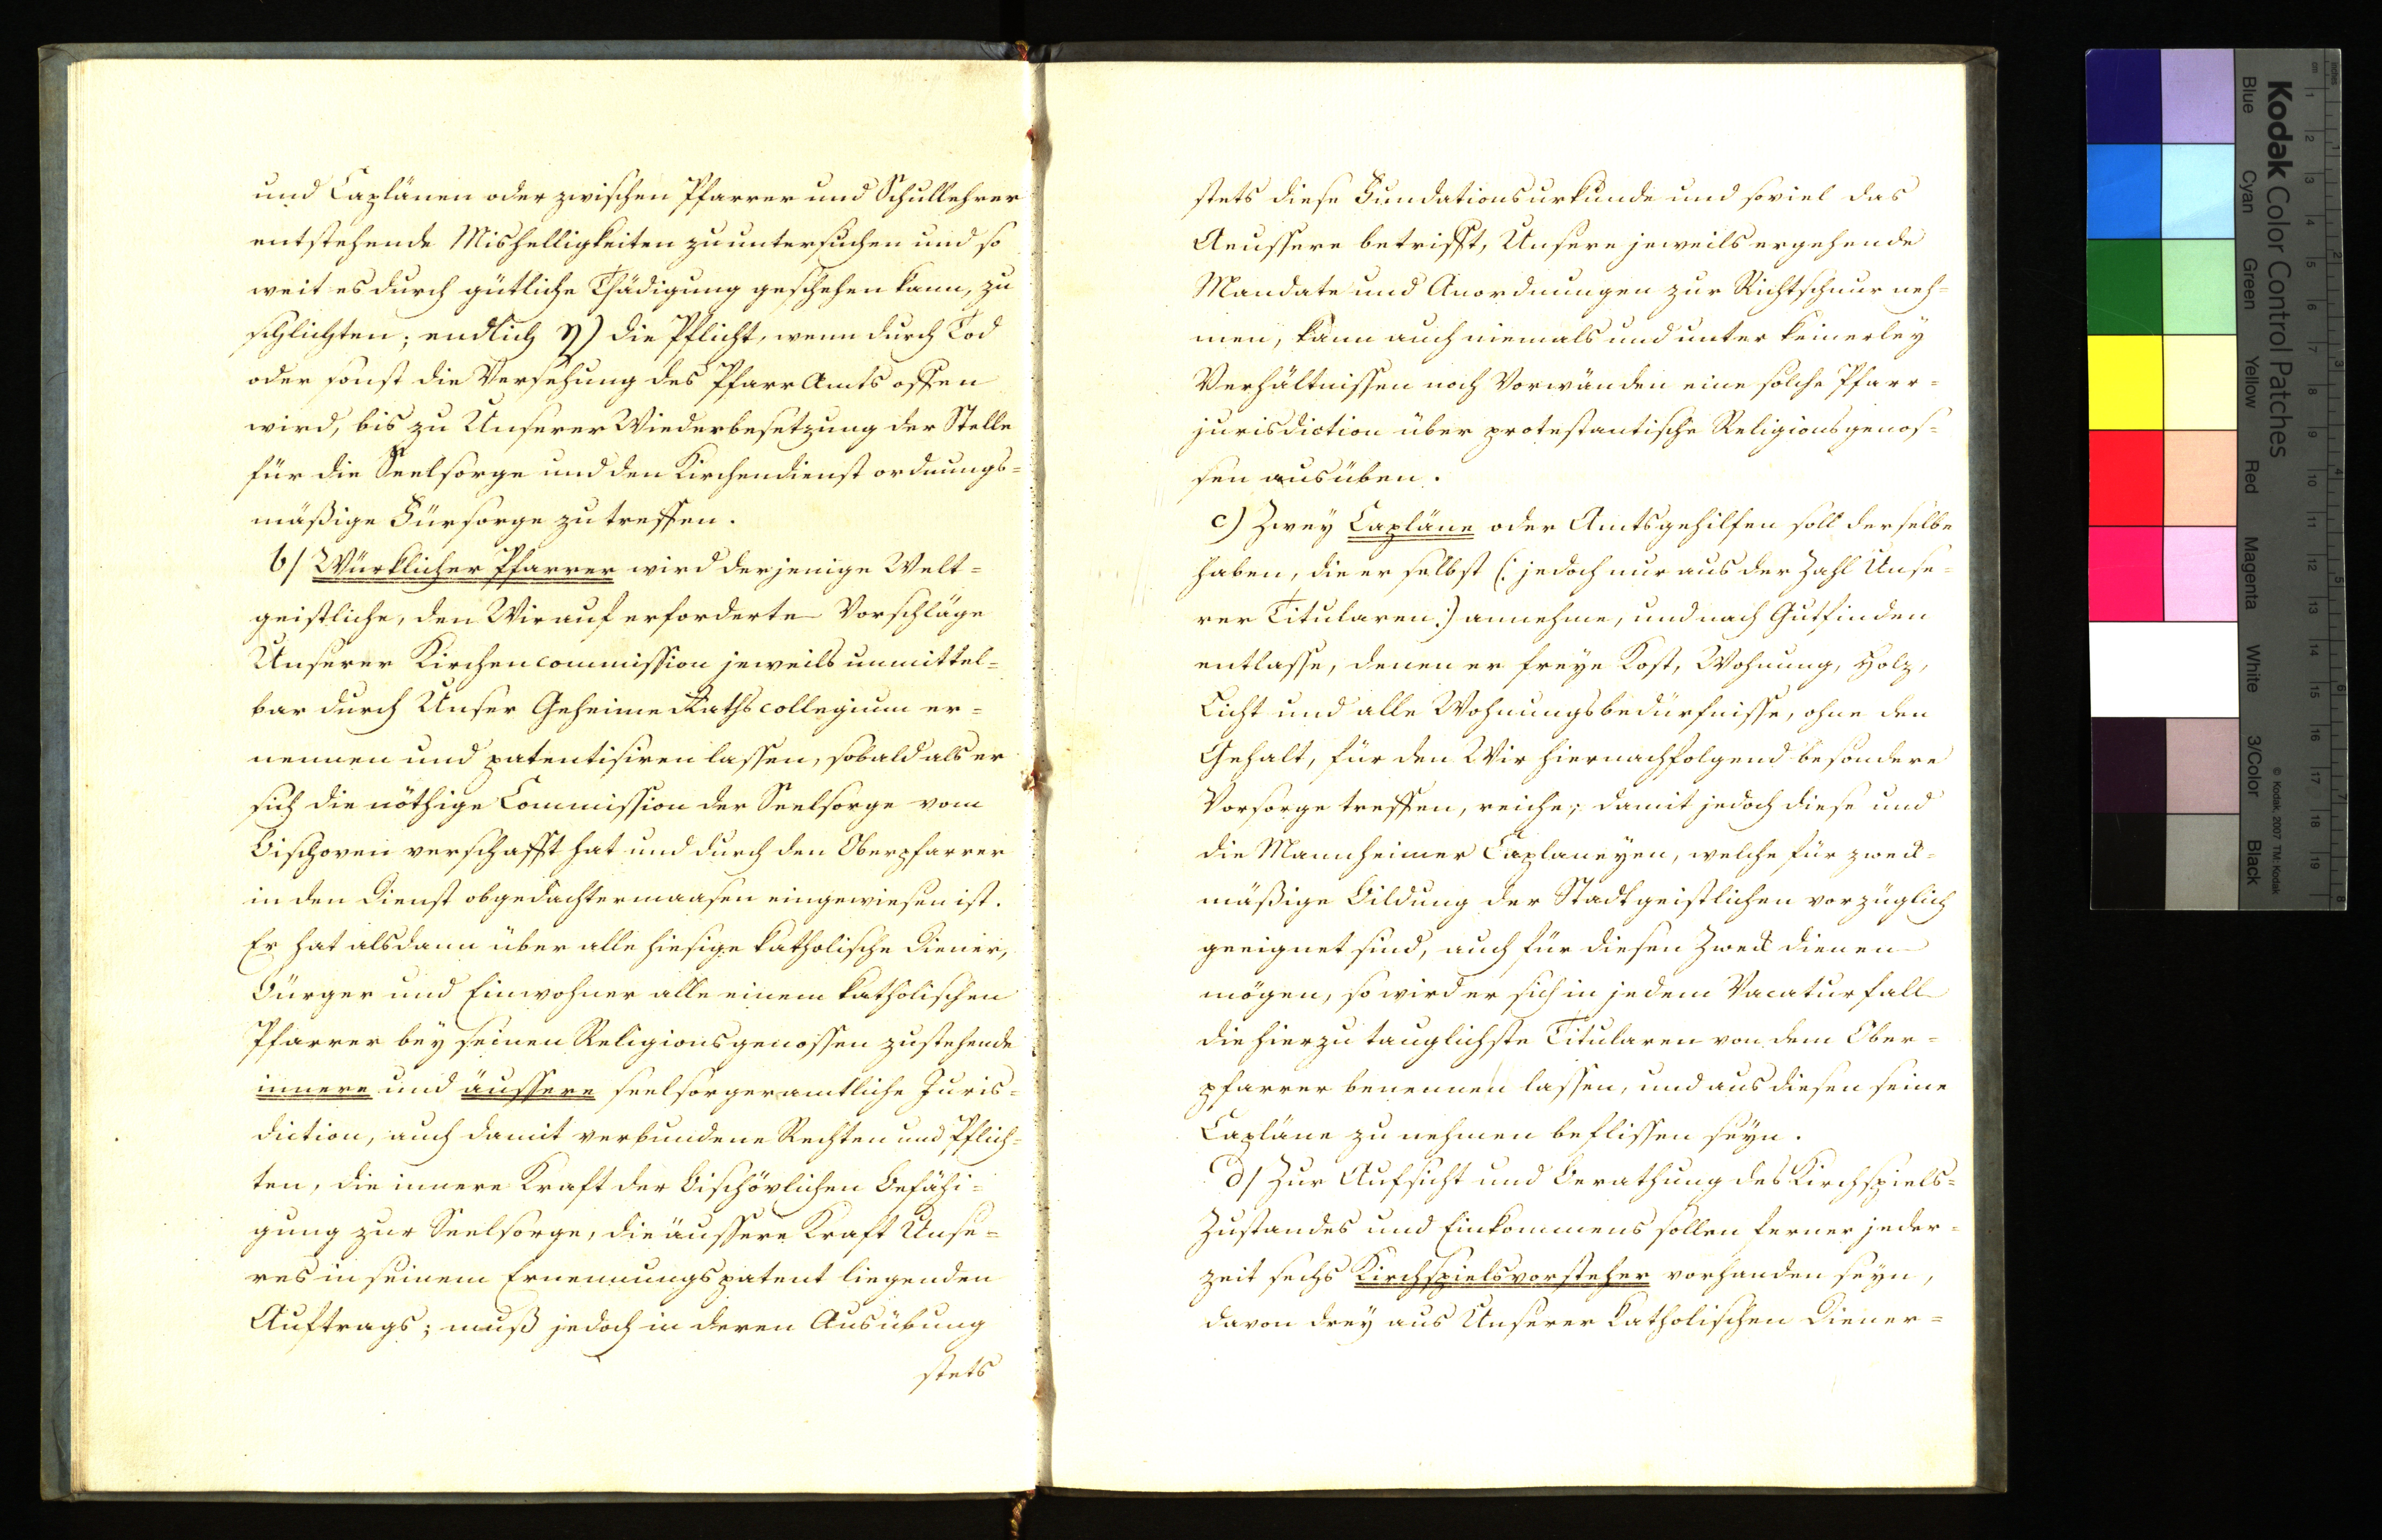 und Caplänen oder zwischen Pfarrer und Schullehrer
entstehende Mishelligkeiten zu untersuchen und so
weit es durch gütliche Thädigung geschehen kann, zu
schlichten; endlich η) die Pflicht, wenn durch Tod
oder sonst die Versehung des Pfarr Amts offen
wird, bis zu Unserer Wiederbesetzung der Stelle
für die Seelsorge und den Kirchendienst ordnungs-
mäßige Fürsorge zu treffen.
b) Würklicher Pfarrer wird derjenige Welt-
geistliche, den Wir auf erforderte Vorschläge
Unserer Kirchencommission jeweils unmittel-
bar durch Unser Geheime Rathscollegium er-
nennen und patentisiren lassen, sobald als er
sich die nöthige Commission der Seelsorge vom
Bischoven verschafft hat und durch den Oberpfarrer
in den Dienst obgedachtermaasen eingewiesen ist.
Er hat alsdann über alle hiesige katholische Diener,
Bürger und Einwohner alle einem katholischen
Pfarrer bey seinen Religionsgenossen zustehende
innere und äussere seelsorgeramtliche Juris-
diction, auch damit verbundene Rechten und Pflich-
ten, die innere Kraft der Bischövlichen Befähi-
gung zur Seelsorge, die äussere Kraft Unse-
res in seinem Ernennungspatent liegenden
Auftrags; muß jedoch in deren Ausübung
stets
stets diese Fundationsurkunde und soviel das
Aeussere betrifft, Unsere jeweils ergehende
Mandate und Anordnungen zur Richtschnur neh-
men, kann auch niemals und unter keinerley
Verhältnissen noch Vorwänden eine solche Pfarr-
jurisdiction über protestantische Religionsgenos-
sen ausüben.
c) Zwey Capläne oder Amtsgehilfen soll derselbe
haben, die er selbst (: jedoch nur aus der Zahl Unse-
rer Titularen :) annehme, und nach Gutfinden
entlasse, denen er freye Kost, Wohnung, Holz,
Licht und alle Wohnungsbedürfnisse, ohne den
Gehalt, für den Wir hiernachfolgend besondere
Vorsorge treffen, reiche; damit jedoch diese und
die Mannheimer Caplaneyen, welche für zweck-
mäßige Bildung der Stadtgeistlichen vorzüglich
geeignet sind, auch für diesen Zweck dienen
mögen, so wird er sich in jedem Vacaturfall
die hierzu tauglichste Titularen von dem Ober-
pfarrer benennen lassen, und aus diesen seine
Capläne zu nehmen beflissen seyn.
d) Zur Aufsicht und Berathung des Kirchspiels-
Zustandes und Einkommens sollen ferner jeder-
zeit sechs Kirchspielsvorsteher vorhanden seyn,
davon drey aus Unserer Katholischen Diener-
Kodak Color Control Patches
© Kodak, 2007 TM: Kodak
Blue Cyan Green Yellow Red Magenta White 3/Color Black
inches 1 2 3 4 5 6 7 8
cm 1 2 3 4 5 6 7 8 9 10 11 12 13 14 15 16 17 18 19